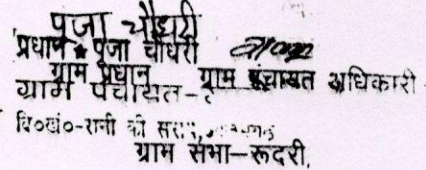 पूजा चौधरी
प्रधान * पूजा चौधरी
ग्राम प्रधान ग्राम पंचायत अधिकारी
ग्राम पंचायत-
वि०खं०-रानी की सराय,
ग्राम सभा-रूदरी,